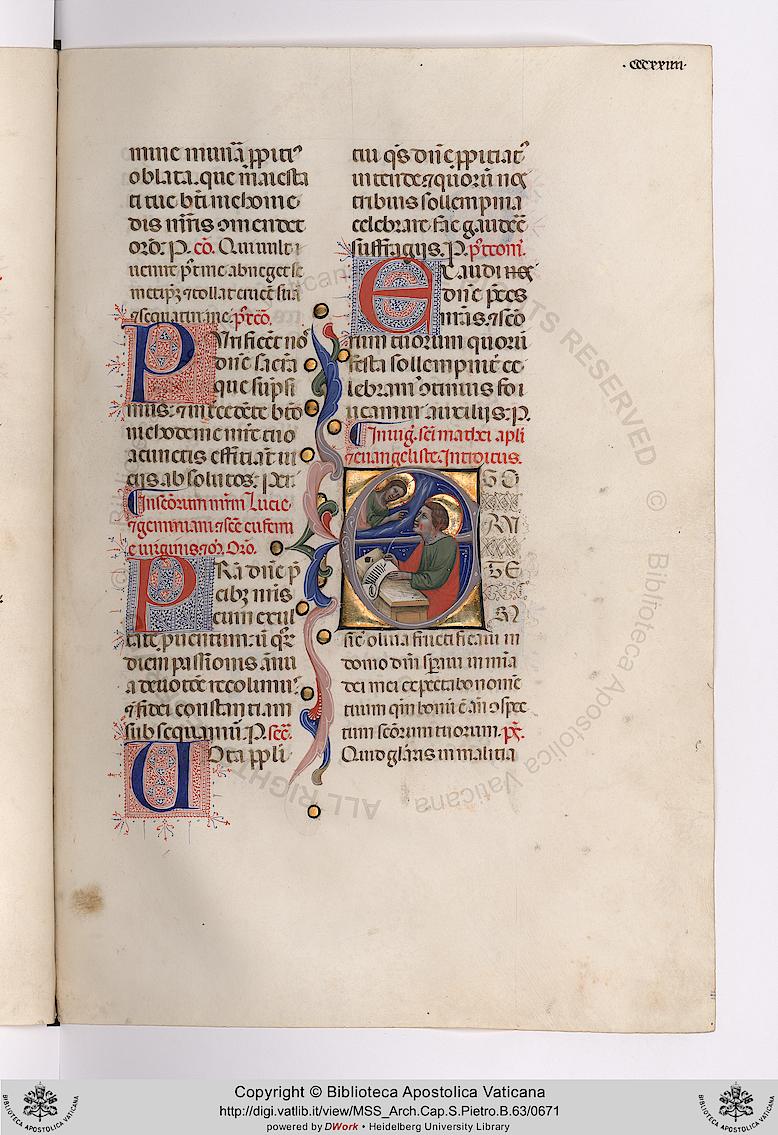 ·ccccxxiiii·
mine munā ꝓpiti᷒
oblata. que maiesta
ti tue bt̄i nichome
dis mr̄is 9mendet
or̄o. P. cō. Qui uult
uenire pꝰt me abneget se
metip̄z ⁊ tollat crucē suā
⁊ sequatur me. pꝰtcō.
Purificēt nos
dn̄e sacra
que sūpsi
mus. ⁊ int̄cedēte bt̄o
nichodeme mr̄e tuo
a cunctis efficiāt ui
ciis absolutos. Per.
In sc̄orum mr̄m Lucie
⁊ geminiani ⁊ sc̄e eufemi
e uirginis ⁊ mr̄. Or̄o.
PRa dn̄e p̄
cib᷒ n̄ris
cum exul
diem passionis annu
a deuotōe recolimꝰ
⁊ fidei constantiam
subsequamur. P. sec̄.
UOta ppli
tui qs̄ dn̄e ꝓpitiatꝰ
intende ⁊ quorū nos
tribuis sollempnia
celebrare fac gaudere
suffragijs. P. pꝰtcom̄.
EXaudi nos
dn̄e p̄ces
nr̄as. ⁊ sc̄o
rum tuorum quorū
festa sollempnit̄ ce
lebram᷒ 9tinuis foi
ueamur auxiliis. P.
In uig̕. sc̄i mathei apl̄i
⁊ euangeliste. Introitus.
EGO
AU
TE
M
sic̄ oliua fructificaui in
domo dn̄i sp̄aui in mīa
dei mei et expectabo nomē
tuum qm̄ bonū ē an̄ 9spec
tum sc̄torum tuorum. pꝰ.
Quid gl̄aris in malitia
Copyright © Biblioteca Apostolica Vaticana
http://digi.vatlib.it/view/MSS_Arch.Cap.S.Pietro.B.63/0671
powered by DWork • Heidelberg University Library
BIBLIOTECA APOSTOLICA VATICANA
BIBLIOTECA APOSTOLICA VATICANA
© Biblioteca Apostolica Vaticana ALL RIGHTS RESERVED